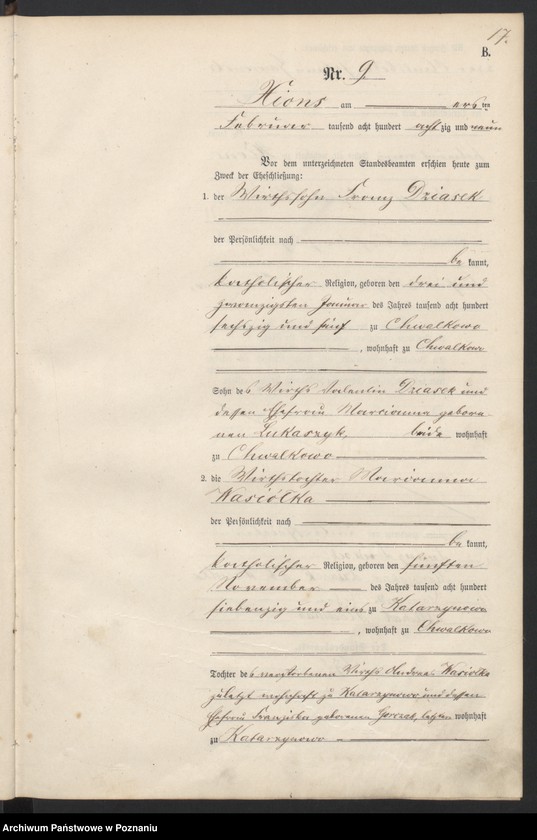 17.
B.
Nr. 9
Xions am ersten
Februar tausend acht hundert achtzig und neun
Vor dem unterzeichneten Standesbeamten erschien heute zum
Zweck der Eheschließung:
1. der Wirthssohn Franz Dziasek
der Persönlichkeit nach
bekannt,
katholischer Religion, geboren den drei und
zwanzigsten Januar des Jahres tausend acht hundert
sechszig und fünf zu Chwalkowo
, wohnhaft zu Chwalkowo
Sohn des Wirths Valentin Dziasek und
dessen Ehefrau Marianna gebore-
nen Lukaszyk, beide wohnhaft
zu Chwalkowo
2. die Wirthstochter Marianna
Wasiólka
der Persönlichkeit nach
bekannt,
katholischer Religion, geboren den fünften
November des Jahres tausend acht hundert
siebenzig und eins zu Katarzynowo
, wohnhaft zu Chwalkowo
Tochter des verstorbenen Wirths Andreas Wasiolka
zuletzt wohnhaft zu Katarzynowo und dessen
Ehefrau Franziska geborenen wohnhaft
zu Katarzynowo
Archiwum Państwowe w Poznaniu